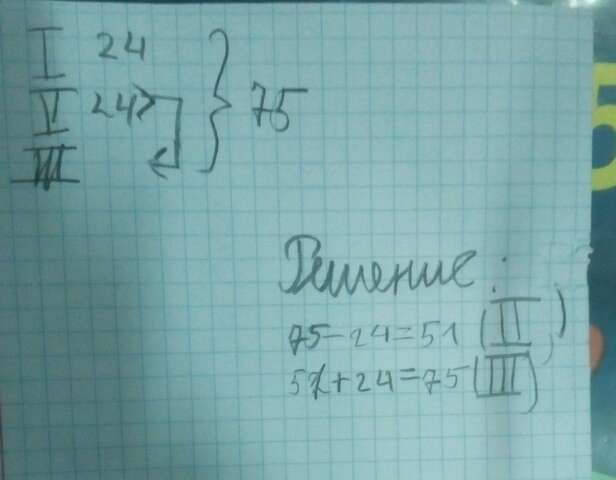 I 24
II 24>
III
} 75
Решение:
75-24=51 (II)
51+24=75 (III)
5